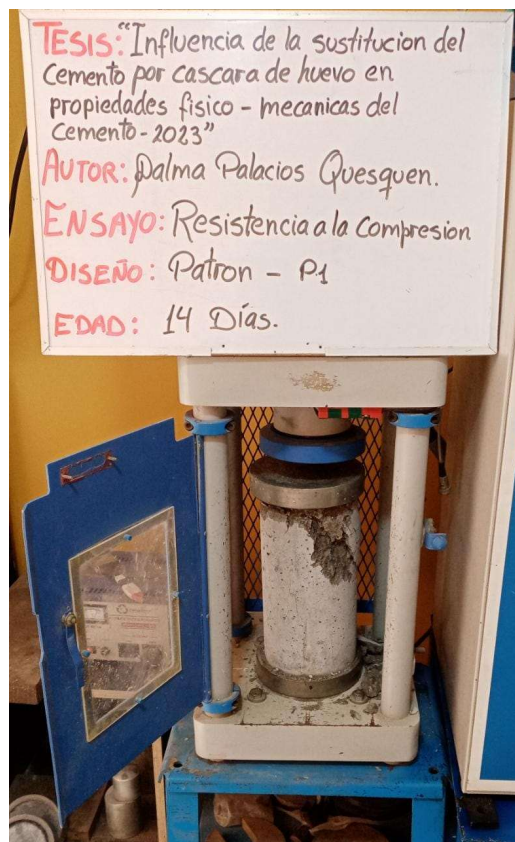 TESIS: "Influencia de la sustitucion del
Cemento por cascara de huevo en
propiedades fisico - mecanicas del
Cemento - 2023"
AUTOR: Dalma Palacios Quesquen.
ENSAYO: Resistencia a la Compresion
DISEÑO: Patron - P1
EDAD: 14 Días.